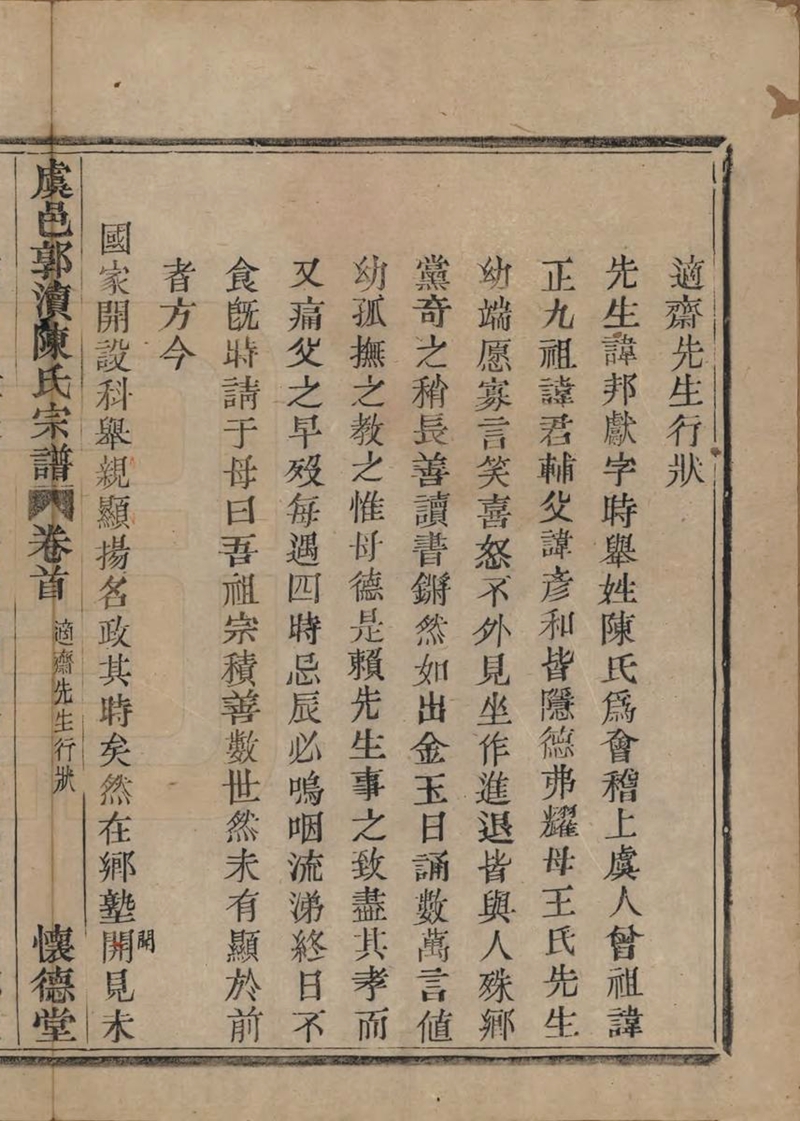 適齋先生行狀
先生諱邦獻字時舉姓陳氏爲會稽上虞人曾祖諱
正九祖諱君輔父諱彥和皆隱德弗耀母王氏先生
幼端愿寡言笑喜怒不外見坐作進退皆與人殊鄉
黨奇之稍長善讀書鏘然如出金玉日誦數萬言値
幼孤撫之教之惟母德是賴先生事之致盡其孝而
又痛父之早歿每遇四時忌辰必嗚咽流涕終日不
食旣時請于母曰吾祖宗積善數世然未有顯於前
者方今
國家開設科舉親顯揚名政其時矣然在鄉塾開見未
聞
虞邑郭瀆陳氏宗譜 卷首 適齋先生行狀 懷德堂